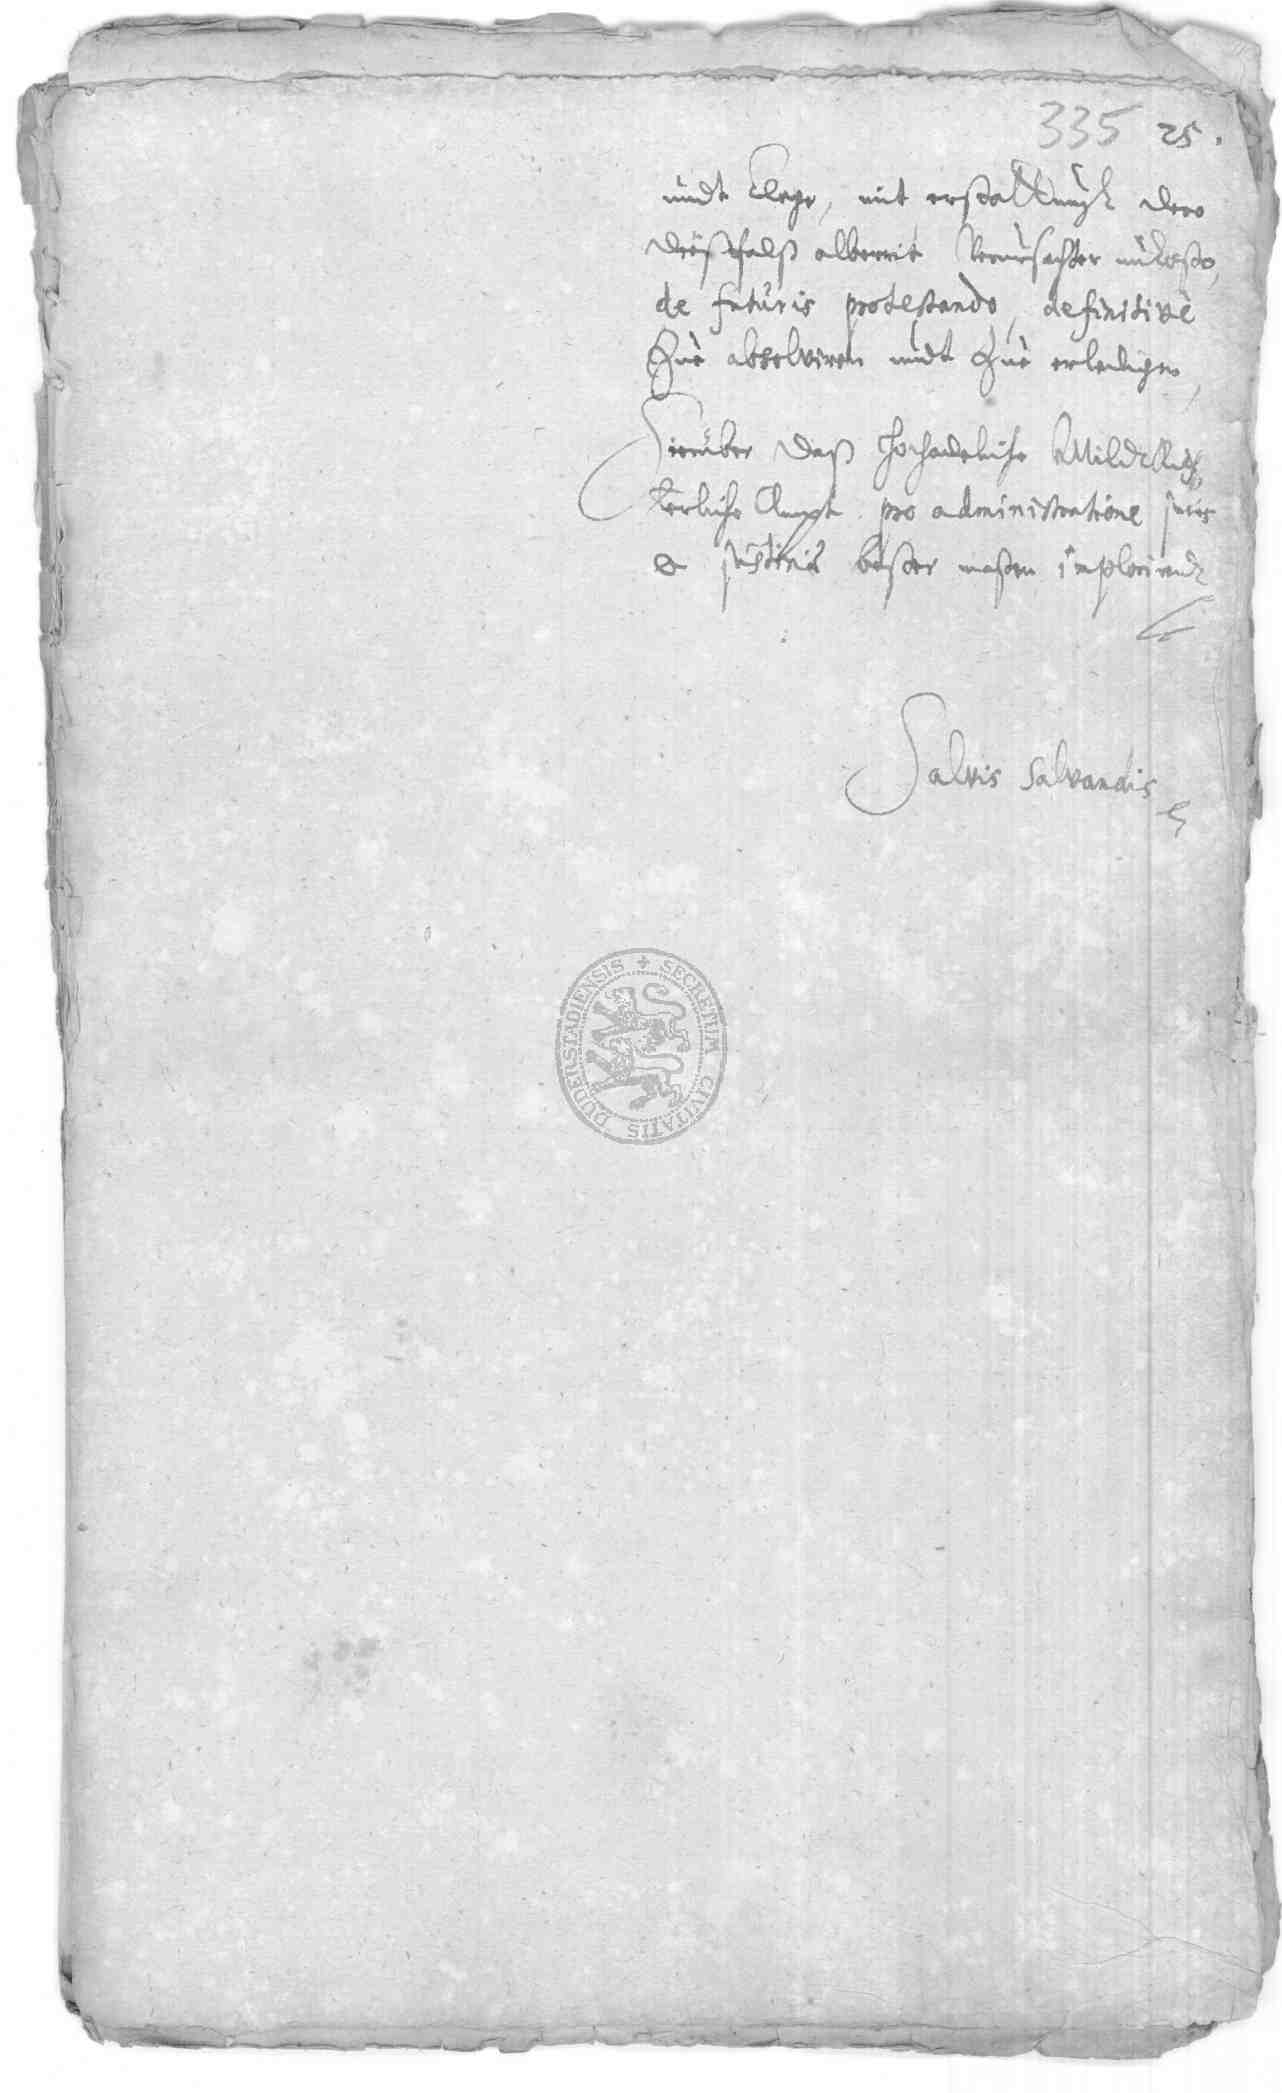 335 25.
undt Klage, mit erstattungk dero
dießfalß albereit verursachter unkosten,
de futuris protestando, definitivè
Zue absolviren undt Zue erledigen,
Hierüber daß hochadeliche Mildt Rich,
terliche Ampt pro administratione juris
& justitiae bester maßen implorirendt
Salvis Salvandis
DUDERSTADIENSIS + SECRETUM CIVITATIS